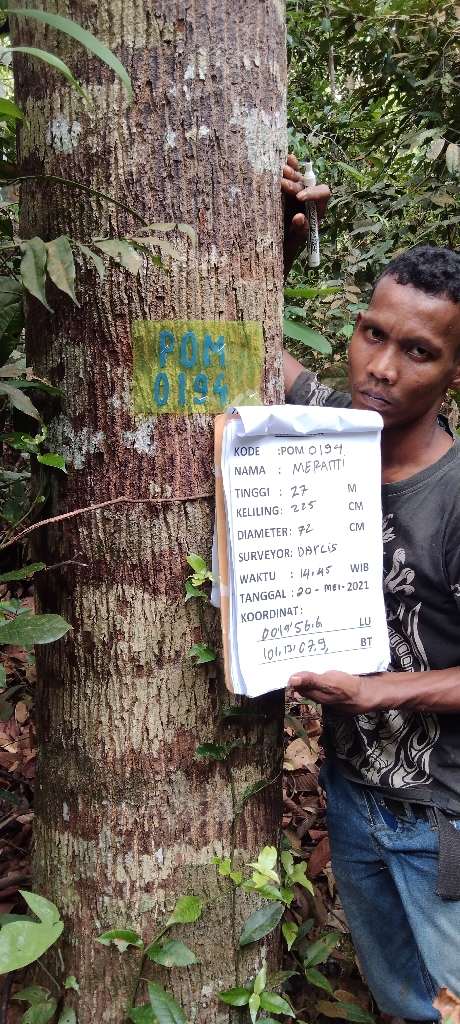 POM
0194
KODE :POM 0194
NAMA : MERANTI
TINGGI : 27 M
KELILING: 225 CM
DIAMETER: 72 CM
SURVEYOR: DARLIS
WAKTU : 14.45 WIB
TANGGAL : 20 - MEI - 2021
KOORDINAT:
0019'56.6 LU
101,12'07.9, BT